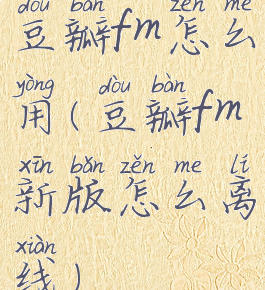 dòu bàn zěn me
豆瓣fm怎么
yòng dòu bàn
用(豆瓣fm
xīn bǎn zěn me lí
新版怎么离
xiàn
线)